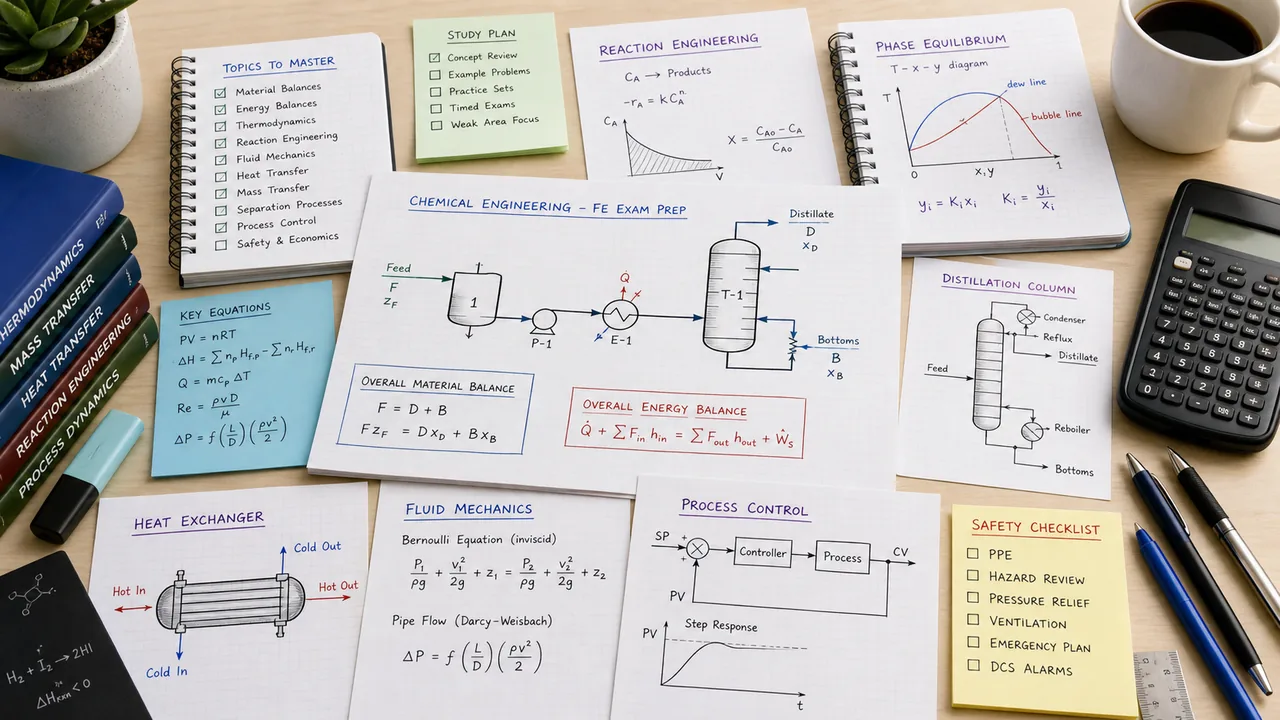 TOPICS TO MASTER
Material Balances
Energy Balances
Thermodynamics
Reaction Engineering
Fluid Mechanics
Heat Transfer
Mass Transfer
Separation Processes
Process Control
Safety & Economics
STUDY PLAN
Concept Review
Example Problems
Practice Sets
Timed Exams
Weak Area Focus
REACTION ENGINEERING
C_A → Products
-r_A = k C_A^n
C_A
V
X = (C_A0 - C_A) / C_A0
PHASE EQUILIBRIUM
T - x - y diagram
T
dew line
bubble line
0
x, y
1
y_i = K_i x_i
K_i = y_i / x_i
THERMODYNAMICS
MASS TRANSFER
HEAT TRANSFER
REACTION ENGINEERING
PROCESS DYNAMICS
KEY EQUATIONS
PV = nRT
ΔH = Σ n_p H_f,p - Σ n_r H_f,r
Q = mc_p ΔT
Re = ρvD / μ
ΔP = f (L/D) (ρv²/2)
CHEMICAL ENGINEERING - FE EXAM PREP
Feed
F
z_F
1
P-1
Q̇
E-1
T-1
Distillate
D
x_D
Bottoms
B
x_B
OVERALL MATERIAL BALANCE
F = D + B
F z_F = D x_D + B x_B
OVERALL ENERGY BALANCE
Q̇ + Σ F_in h_in = Σ F_out h_out + Ŵ_s
DISTILLATION COLUMN
Condenser
Reflux
Distillate
Feed
Reboiler
Bottoms
HEAT EXCHANGER
Cold Out
Hot In
Hot Out
Cold In
H₂ + I₂ → 2HI
FLUID MECHANICS
Bernoulli Equation (inviscid)
P₁/ρg + v₁²/2g + z₁ = P₂/ρg + v₂²/2g + z₂
Pipe Flow (Darcy-Weisbach)
ΔP = f (L/D) (ρv²/2)
PROCESS CONTROL
SP
+
+
Controller
Process
CV
PV
Step Response
PV
t
SAFETY CHECKLIST
PPE
HAZARD REVIEW
PRESSURE RELIEF
VENTILATION
EMERGENCY PLAN
DCS ALARMS